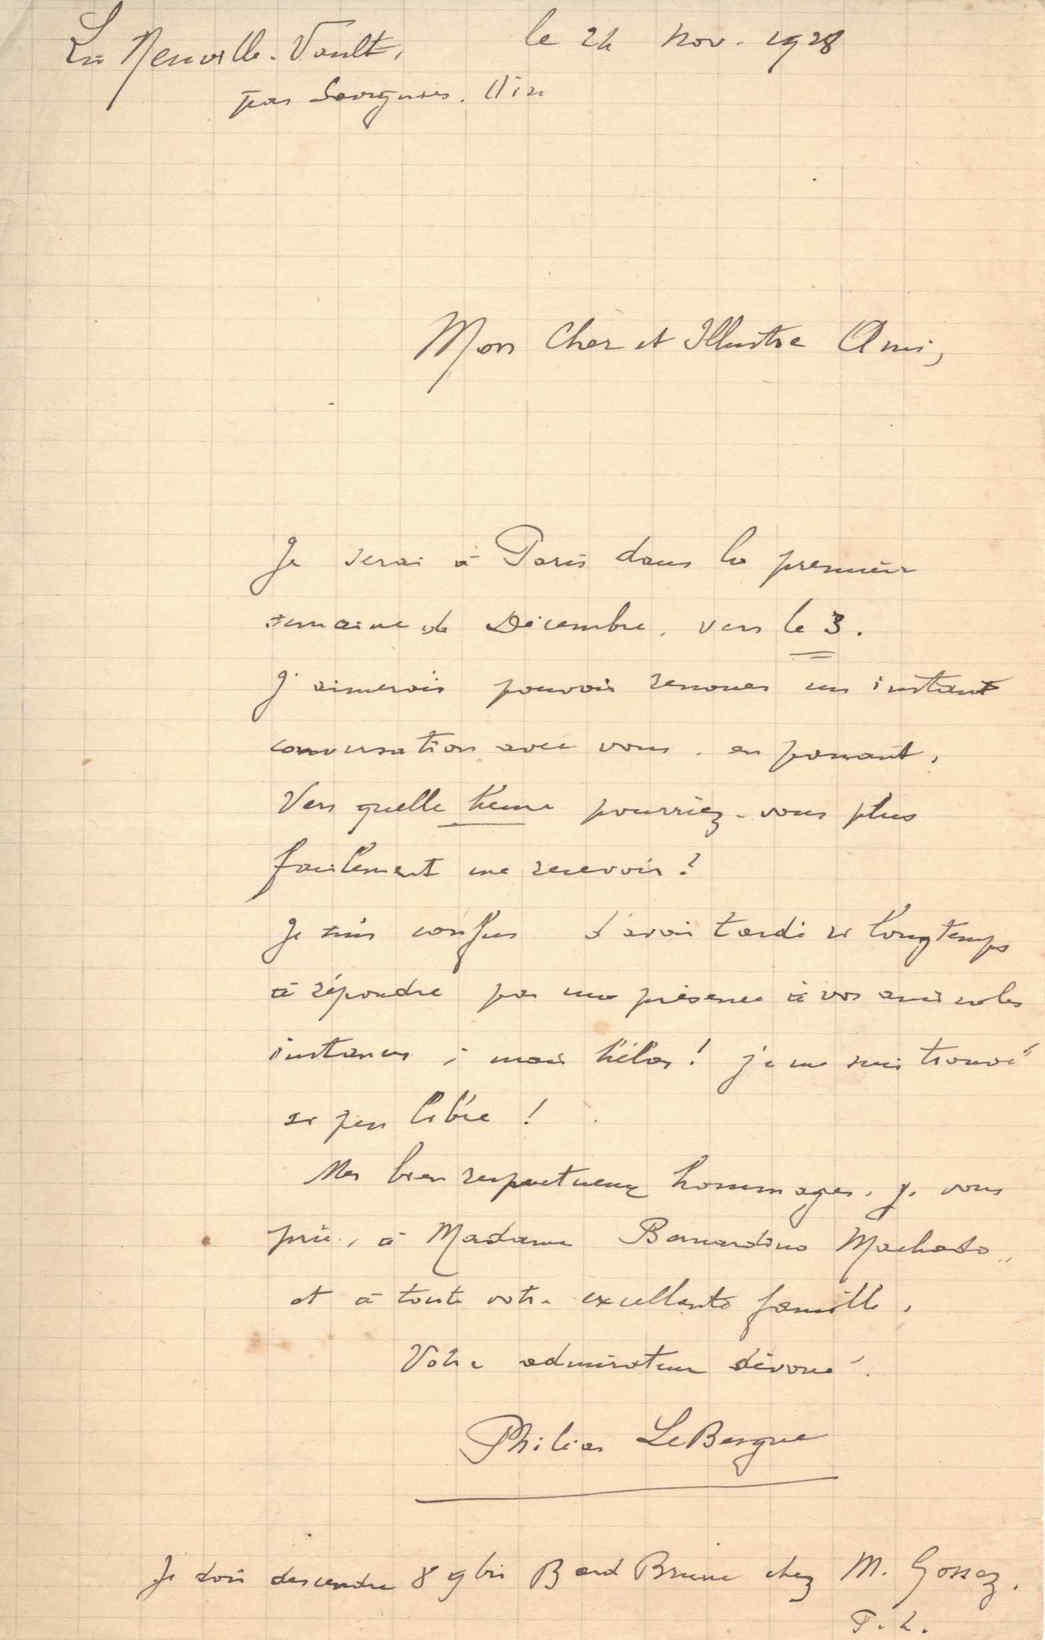 La Neuville-Vault, le 24 nov. 1928
par Savignies. Oise
Mon Cher et Illustre Ami,
Je serai à Paris dans la première
semaine de Décembre, vers le 3.
J'aimerais pouvoir renouer un instant
conversation avec vous, en passant.
Vers quelle heure pourriez-vous plus
facilement me recevoir ?
Je suis confus d'avoir tardé si longtemps
à répondre par ma présence à vos amicales
instances ; mais hélas ! je me suis trouvé
si peu libre !
Mes bien respectueux hommages, je vous
prie, à Madame Bernardino Machado,
et à toute votre excellente famille.
Votre admirateur dévoué.
Philéas LeBesgue
Je dois descendre 89 bis Bard Brune chez M. Gossez.
P. L.